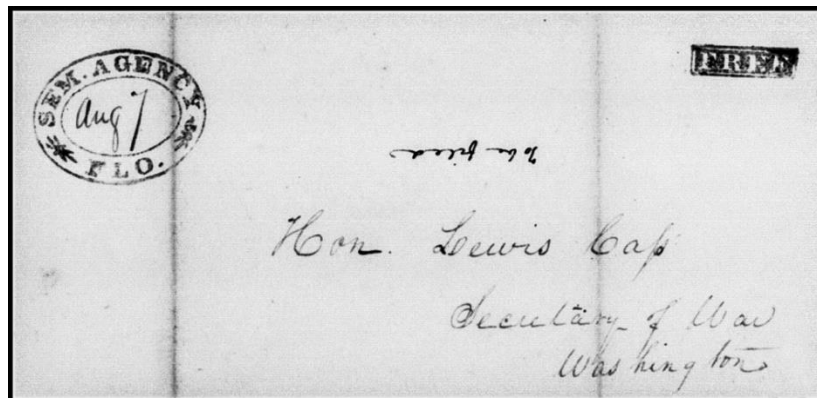 SEM. AGENCY
Aug 7
FLO.
FREE
To be filed
Hon. Lewis Caſs
Secretary of War
Washington